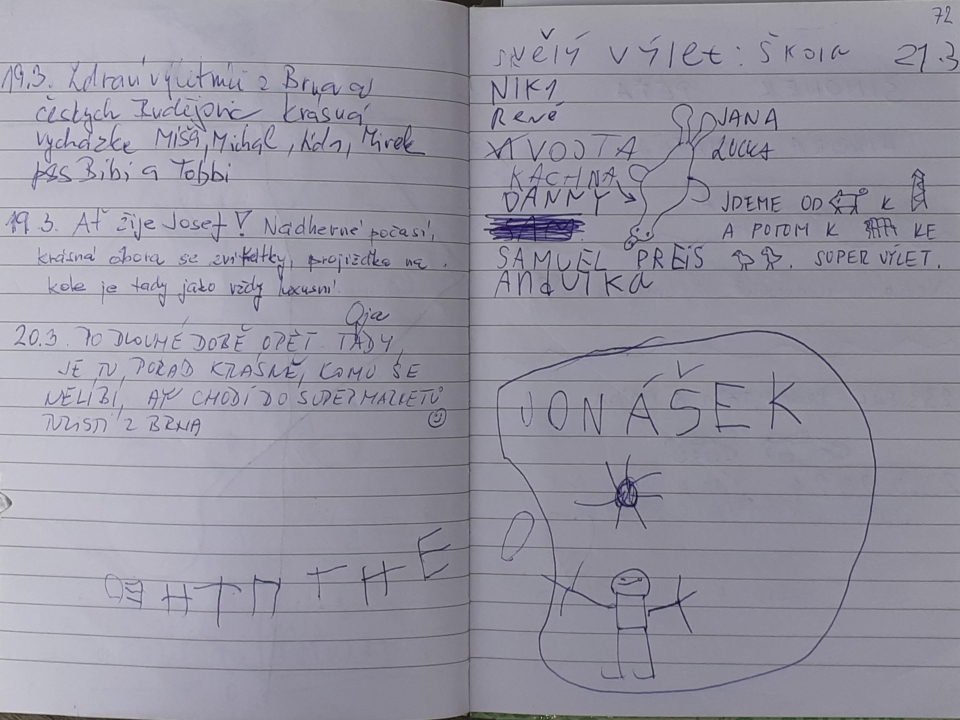 19.3. Zdraví výletníci z Brna a
českých Budějovic krásná
vycházka Míša, Michal, Mirek
pes Bibi a Tobbi
19.3. Ať žije Josef! Nádherné počasí,
krásná obora se zvířátky, projížďka na
kole je tady jako vždy luxusní
20.3. PO DLOUHÉ DOBĚ OPĚT TADY,
JE TU POŘÁD KRÁSNĚ, KOMU SE
NELÍBÍ, AŤ CHODÍ DO SUPERMARKETŮ
TURISTI Z BRNA
72
výlet: škola 21.3
NIKI
René
VOJTA
KACHNA
DANNY
SAMUEL PREIS
ANdULKA
JANA
LUCKA
JDEME OD K
A POTOM K KE
. SUPER VÝLET.
JONÁŠEK